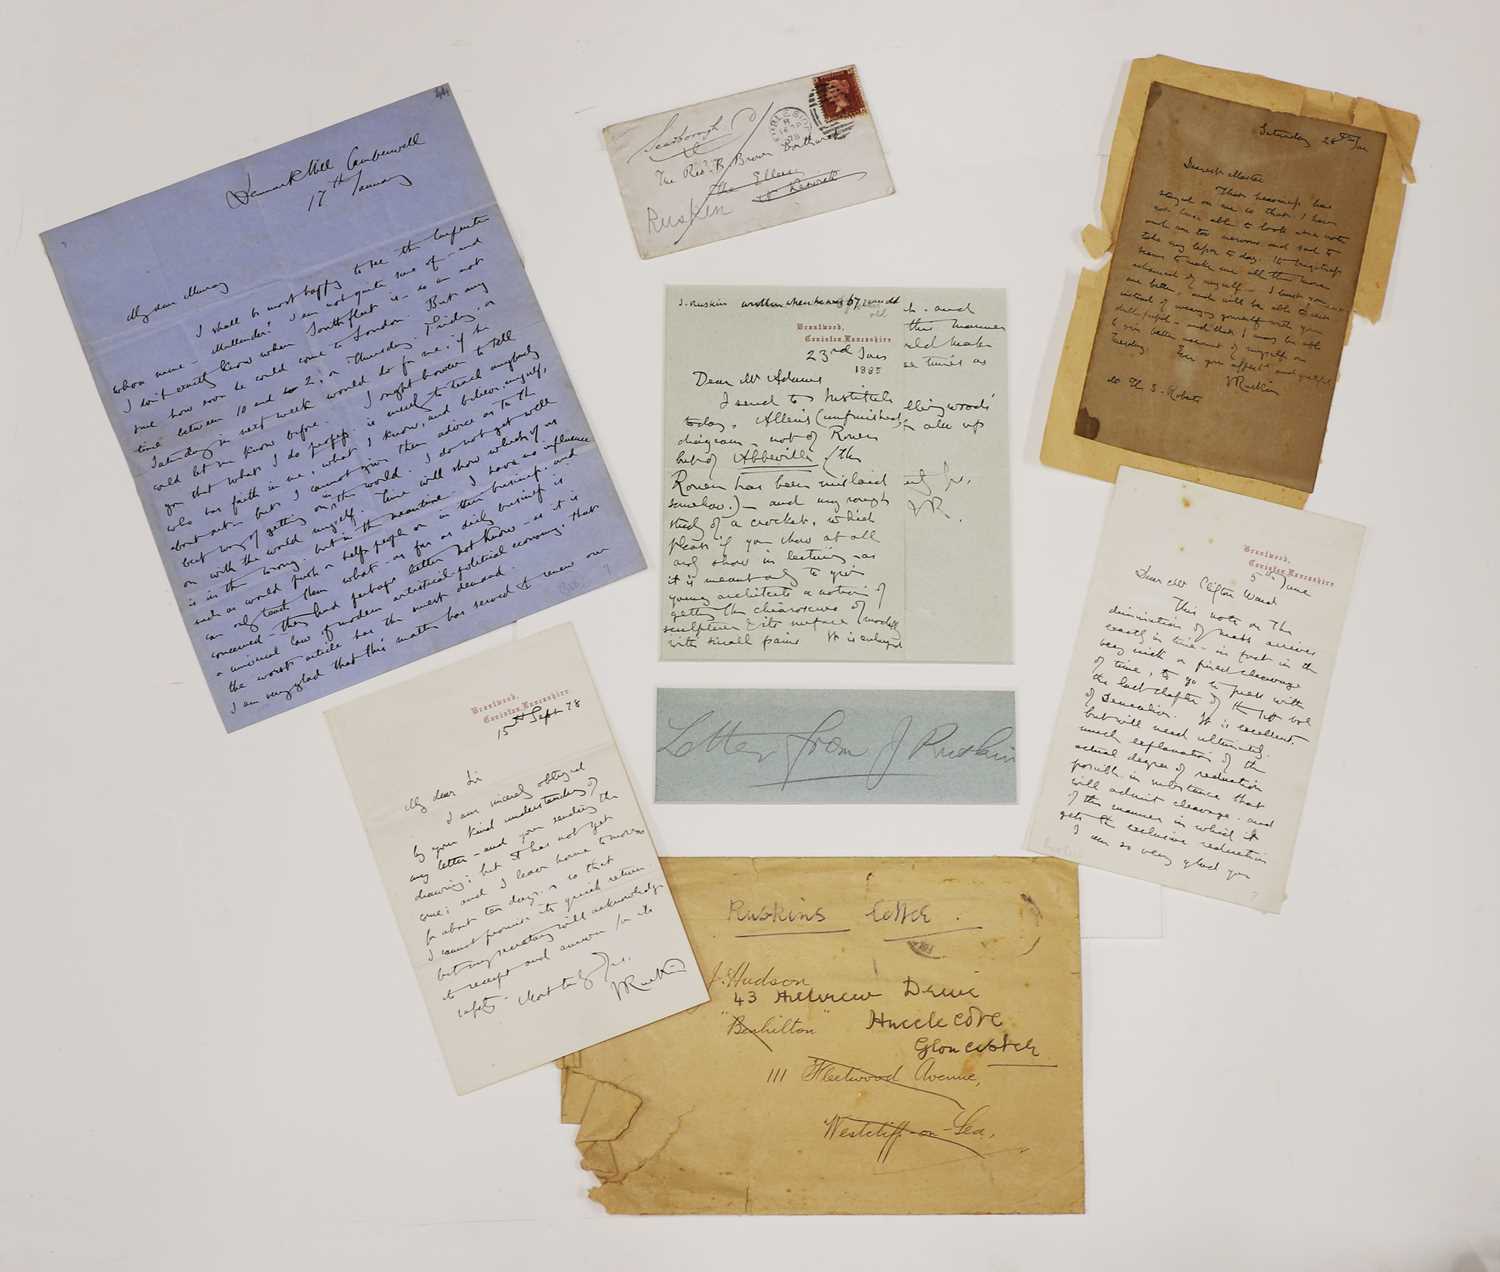 44
Denmark Hill Camberwell
17th January
My dear Murray
I shall be most happy to see the Carpenter
whom name - Mullender? I am not quite sure of - and
I don't exactly know when Southfleet is - so am not
sure how soon he could come to London. But any
time between 10 and 2, on Thursday, Friday, or
Saturday in next week would do for me: if he
could let me know before. I ought however to tell
you that what I do profess is merely to teach anybody
who has faith in me, what I know, and believe myself,
about art - but I cannot give them advice as to the
best way of getting on in the world. I do not get well
on with the world myself. Time will show which of us
is in the wrong: but in the meantime I have no influence
such as would push or help people on in their business. and
can only teach them what - as far as daily business is
concerned - they had perhaps better not know - as it is
a universal law of modern artistical-political economy, that
the worst article has the most demand.
I am very glad that this matter has served to renew our
Scarborough
The Revd. R. Brown Borthwick
The Ellers
Keswick
AMBLESIDE
Ruskin
Saturday 28th Jan
Dearest Master
That heaviness has
stayed on me so that I have
not been able to look at a note
and am too nervous and sad to
take my lesson to day. It
seems to make me all the more
ashamed of myself - I trust you
are better, and will be able to
instead of wearying yourself with your
dull pupil - and that I may be able
to give better account of myself on
Tuesday. Ever your affect and grateful
J Ruskin
J. Ruskin written when he was 67 years old
Brantwood,
Coniston, Lancashire.
23rd Jan
1885
Dear Mr Adams
I send to Institute
today, Allen's (unfinished)
diagram, not of Rouen
but of Abbeville (the
Rouen has been mislaid
somehow.) - and my rough
study of a crocket, which
please if you show at all
only show in lecturing, as
it is meant only to give
young architects a notion of
getting the chiaroscuro of
sculpture & its surface modelling
with small pains It is enlarged
and
the manner
uld make
se times as
llingwood's
all up
JR.
Brantwood,
Coniston, Lancashire.
5th June
Dear Mr Clifton Ward
This note on the
diminution of mass arrives
exactly in time - in fact in the
very nick or finest cleavage
of time, to go to press with
the last chapter of the 1st vol
of Deucalion. It is excellent.
but will need ultimately.
much explanation of the
actual degree of reduction
possible in substance that
will admit cleavage. and
of the manner in which it
gets the exclusive reduction
I am so very glad you
Letter from J Ruskin
Brantwood,
Coniston, Lancashire.
15th Sept 78
My dear Sir
I am sincerely obliged
by your kind understanding of
my letter - and your sending the
drawing; but it has not yet
come; and I leave home tomorrow
for about ten days. so that
I cannot promise its quick return.
but my secretary will acknowledge
its receipt and answer for its
safety
J Ruskin
Ruskins letter.
J. Hudson
43 Hillview Drive
"Benhilton" Hucclecote
Gloucester
111 Fleetwood Avenue,
Westcliff-on-Sea,